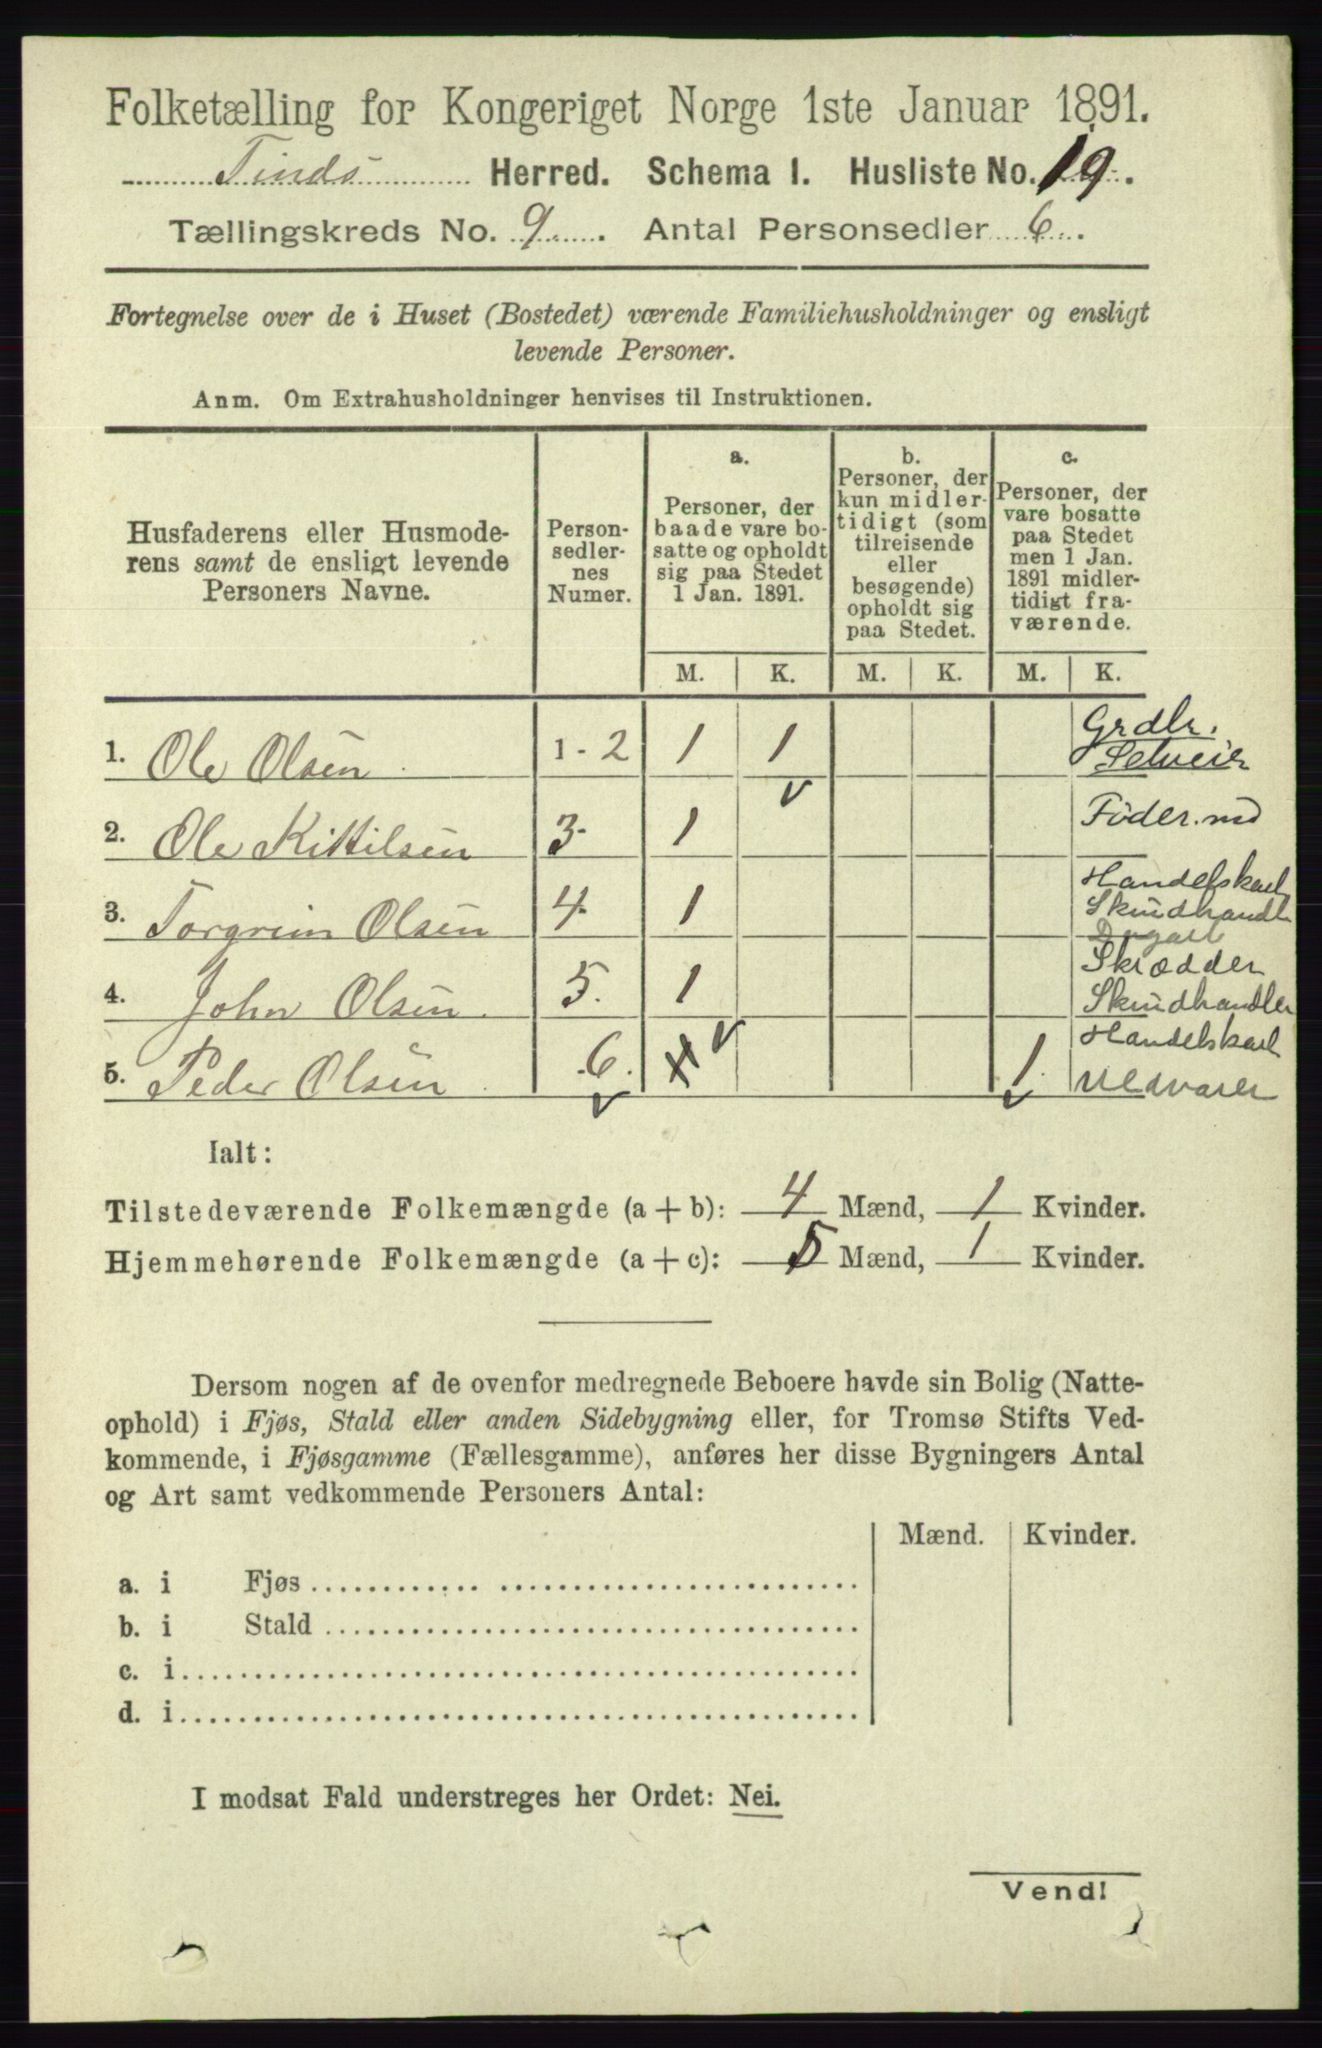 Folketælling for Kongeriget Norge 1ste Januar 1891.
Tinds Herred. Schema I. Husliste No. 19.
Tællingskreds No. 9. Antal Personsedler 6.
Fortegnelse over de i Huset (Bostedet) værende Familiehusholdninger og ensligt
levende Personer.
Anm. Om Extrahusholdninger henvises til Instruktionen.
Husfaderens eller Husmode-
rens samt de ensligt levende
Personers Navne.
Person-
sedler-
nes
Numer.
a.
Personer, der
baade vare bo-
satte og opholdt
sig paa Stedet
1 Jan. 1891.
b.
Personer, der
kun midler-
tidigt (som
tilreisende
eller
besøgende)
opholdt sig
paa Stedet.
c.
Personer, der
vare bosatte
paa Stedet
men 1 Jan.
1891 midler-
tidigt fra-
værende.
M. K. M. K. M. K.
1. Ole Olsen. 1-2 1 1 Grdbr. Selveier
2. Ole Kittilsen 3- 1 Føder.md
3. Torgrim Olsen 4- 1 Handelskarl Skindhandl
4. John Olsen. 5. 1 Skrædder Skindhandler
5. Peder Olsen. 6. 1 Handelskarl Uldvarer
Ialt:
Tilstedeværende Folkemængde (a + b): 4 Mænd, 1 Kvinder.
Hjemmehørende Folkemængde (a + c): 5 Mænd, 1 Kvinder.
Dersom nogen af de ovenfor medregnede Beboere havde sin Bolig (Natte-
ophold) i Fjøs, Stald eller anden Sidebygning eller, for Tromsø Stifts Ved-
kommende, i Fjøsgamme (Fællesgamme), anføres her disse Bygningers Antal
og Art samt vedkommende Personers Antal:
Mænd. Kvinder.
a. i Fjøs
b. i Stald
c. i
d. i
I modsat Fald understreges her Ordet: Nei.
Vend!